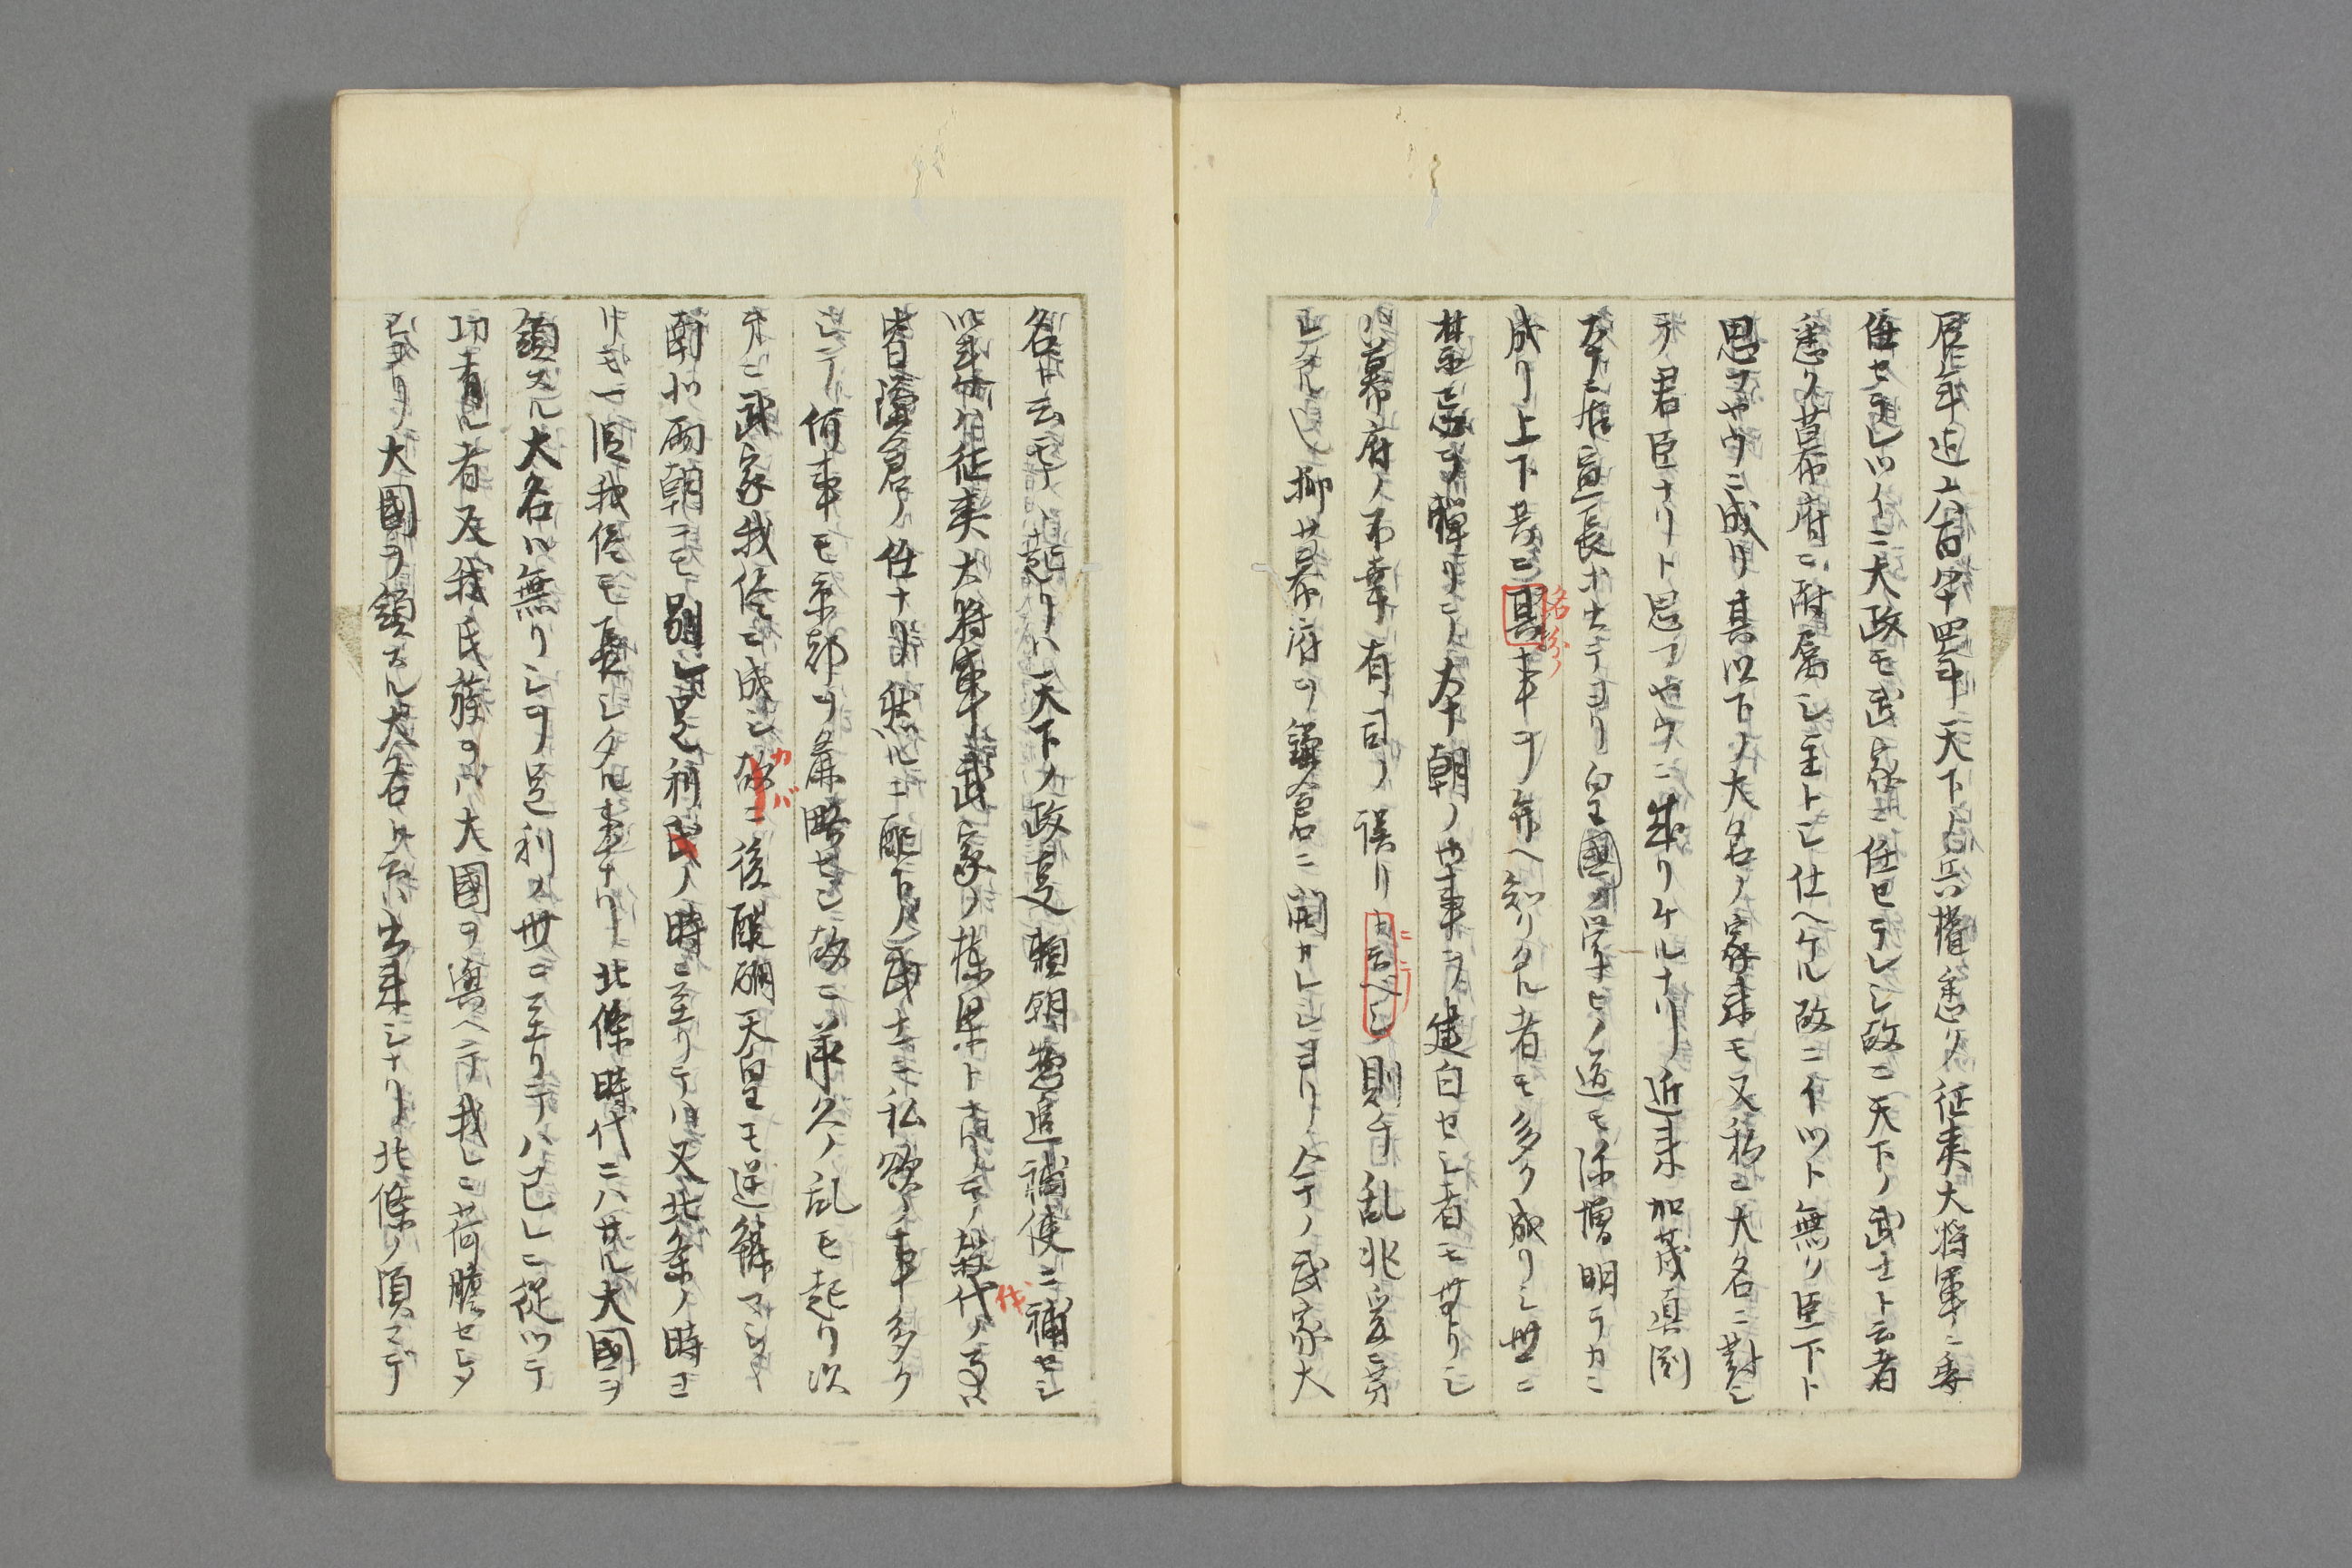 年迠六百四十四年天下ノ兵權悉ク征夷大将軍ニ委
任セラレツイニ大政モ武家ニ任セラレシ故ニ天下ノ武士ト云者
悉ク幕府ニ附属シ主トシ仕ヘケル故ニイツト無ク臣下ト
思フヤウニ成リ其以下ノ大名ノ家来モ又私ニ大名ニ對シ
テ君臣ナリト思フヤウニ成リケルナリ近来加茂真淵
本居宣長出テヨリ皇國ノ学ヒノ道モ弥増明ラカニ
成リ上下共ニ其事ヲ弁ヘ知リタル者モ多ク成リシ世ニ
名分ノ
禁忌ヲ憚リテ朝ノ事ヲ建白セシ者モ無リシ
ハ幕府ノ不幸有司ノ誤リト云ベシ則チ乱兆
抑幕府ヲ鎌倉ニ開カレシヨリ今ノ武家大
名ト云モノ起リハ天下ノ政道頼朝惣追補使ニ補セシ
以来ハ征夷大将軍武家ノ棟梁トナリテノ
代
皆鎌倉ノ任ナリ然ルニ配下ノ武士モ私欲ノ事多ク
シテ何事モ京都ヲ麁略セシ故ニ承久ノ乱モ起リ次
第ニ武家我侭ニ成シ故ニ後醍醐天皇モ逆鱗マシ
カバ
南北両朝ニモ別レ足利氏ノ時ニ至リテハ又北条ノ時ヨ
リモ一段我侭モ長シタル事ナリ北條時代ニハサル大國ヲ
領スル大名ハ無リシヲ足利ノ世ニ至リテハ己レニ従ツテ
功有ル者及我氏族ヲハ大國ヲ與ヘテ我レニ荷膽セシメ
シヨリ大國ヲ領スル大名ハ出来シナリ北條ノ頃マデ